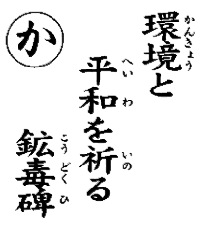 か
環境と
平和を祈る
鉱毒碑
かんきょう
へいわ
いの
こうどくひ